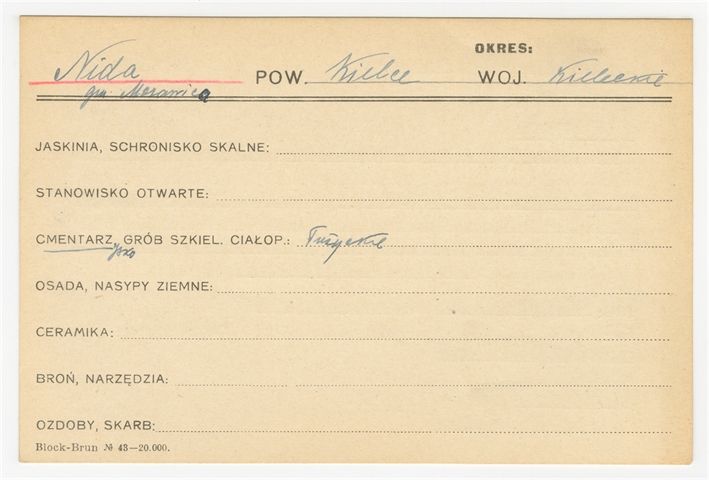 OKRES:
Nida POW. Kielce WOJ. Kieleckie
gm. Morawica
JASKINIA, SCHRONISKO SKALNE:
STANOWISKO OTWARTE:
CMENTARZysko, GRÓB SZKIEL. CIAŁOP.: Łużyckie
OSADA, NASYPY ZIEMNE:
CERAMIKA:
BROŃ, NARZĘDZIA:
OZDOBY, SKARB:
Block-Brun № 43—20.000.